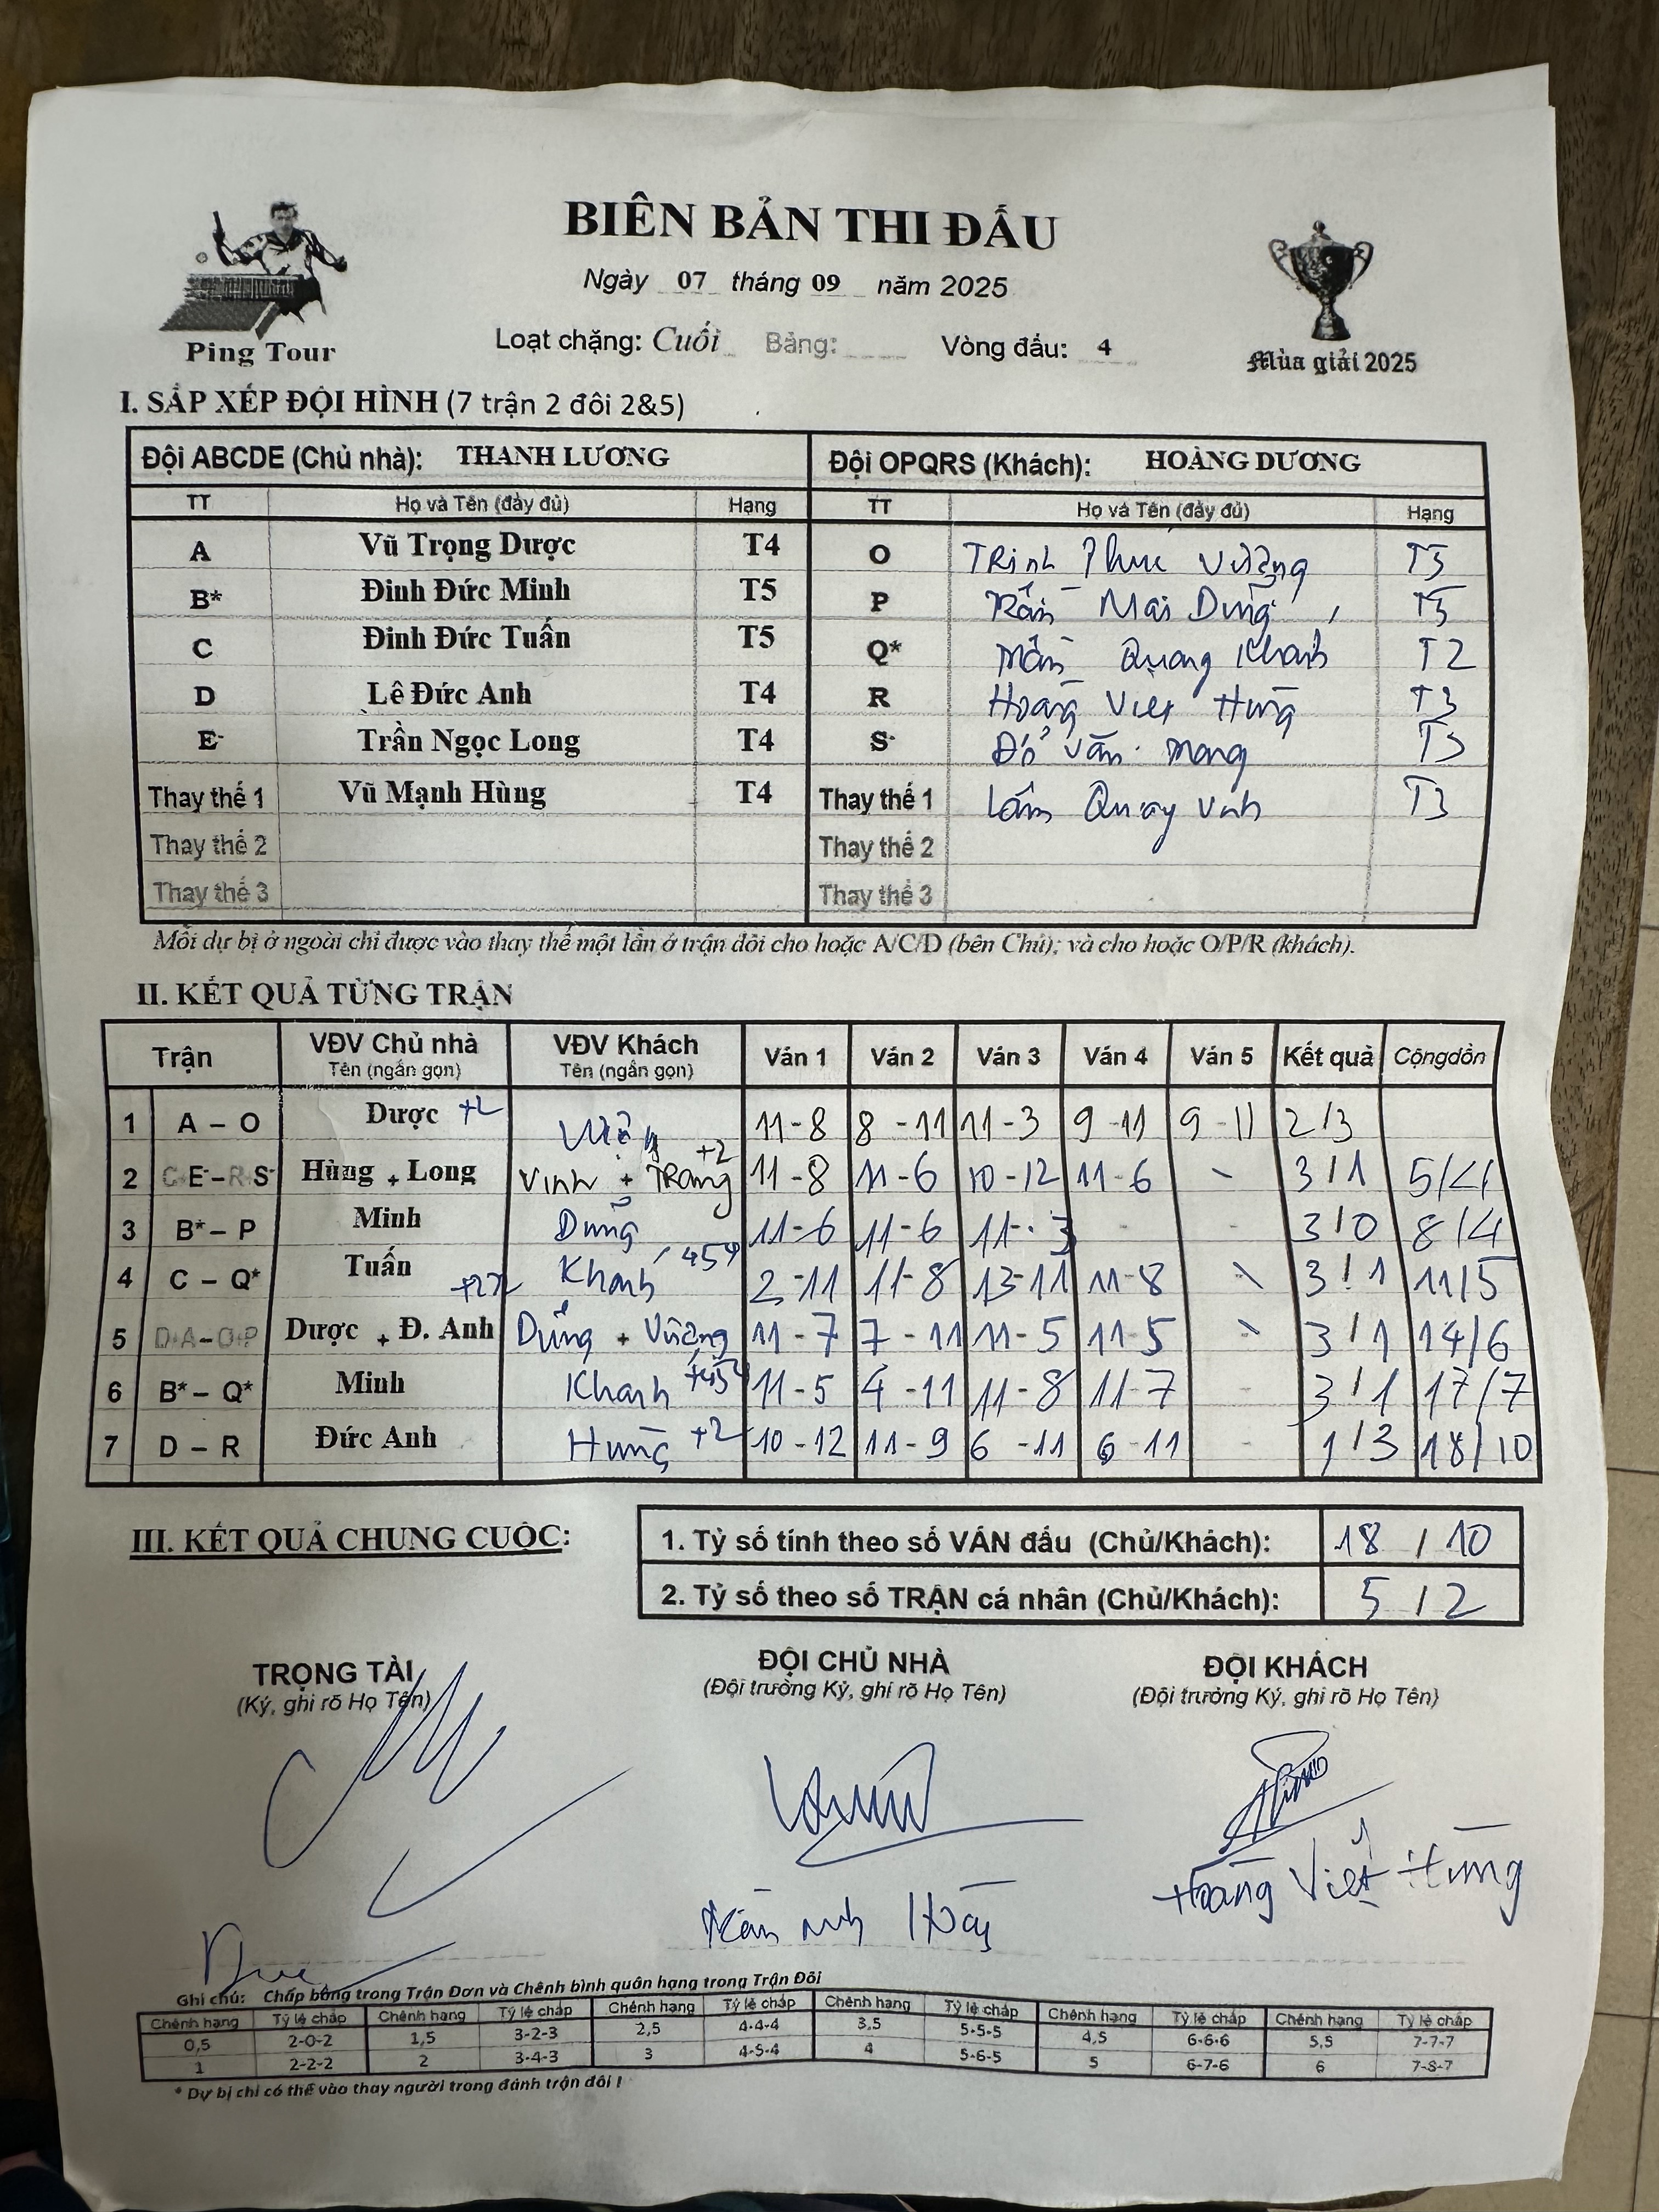 BIÊN BẢN THI ĐẤU
Ngày 07 tháng 09 năm 2025
Loạt chặng: Cuối Bảng: Vòng đấu: 4
Ping Tour
Mùa giải 2025
I. SẮP XẾP ĐỘI HÌNH (7 trận 2 đôi 2&5)
Đội ABCDE (Chủ nhà): THANH LƯƠNG Đội OPQRS (Khách): HOÀNG DƯƠNG
TT Họ và Tên (đầy đủ) Hạng TT Họ và Tên (đầy đủ) Hạng
A Vũ Trọng Dược T4 O Trịnh Phuc Vường T5
B* Đinh Đức Minh T5 P Trần Mai Dũng T5
C Đinh Đức Tuấn T5 Q* Quang Khanh T2
D Lê Đức Anh T4 R Hoàng Việt Hùng T3
E- Trần Ngọc Long T4 S- Đỗ Văn
Thay thế 1 Vũ Mạnh Hùng T4 Thay thế 1 Lâm Vinh T3
Thay thế 2 Thay thế 2
Thay thế 3 Thay thế 3
Mỗi dự bị ở ngoài chỉ được vào thay thế một lần ở trận đôi cho hoặc A/C/D (bên Chủ); và cho hoặc O/P/R (khách).
II. KẾT QUẢ TỪNG TRẬN
Trận VĐV Chủ nhà VĐV Khách Ván 1 Ván 2 Ván 3 Ván 4 Ván 5 Kết quả Cộng dồn
Tên (ngắn gọn) Tên (ngắn gọn)
1 A – O Dược +2 11-8 8-11 11-3 9-11 9-11 2/3
2 C+E-–R+S- Hùng + Long Vinh + +2 11-8 11-6 10-12 11-6 - 3/1 5/4
3 B* – P Minh Dũng 11-6 11-6 11-3 - - 3/0 8/4
4 C – Q* Tuấn Khanh 454 2-11 11-8 13-11 11-8 \ 3/1 11/5
5 D+A–O+P Dược + Đ. Anh Dũng + Vường 11-7 7-11 11-5 11-5 \ 3/1 14/6
6 B* – Q* Minh Khanh +454 11-5 4-11 11-8 11-7 - 3/1 17/7
7 D – R Đức Anh Hùng +2 10-12 11-9 6-11 6-11 - 1/3 18/10
III. KẾT QUẢ CHUNG CUỘC:
1. Tỷ số tính theo số VÁN đấu (Chủ/Khách): 18 / 10
2. Tỷ số theo số TRẬN cá nhân (Chủ/Khách): 5 / 2
TRỌNG TÀI ĐỘI CHỦ NHÀ ĐỘI KHÁCH
(Ký, ghi rõ Họ Tên) (Đội trưởng Ký, ghi rõ Họ Tên) (Đội trưởng Ký, ghi rõ Họ Tên)
Hoàng Việt Hùng
Ghi chú: Chấp bóng trong Trận Đơn và Chênh bình quân hạng trong Trận Đôi
Chênh hạng Tỷ lệ chấp Chênh hạng Tỷ lệ chấp Chênh hạng Tỷ lệ chấp Chênh hạng Tỷ lệ chấp Chênh hạng Tỷ lệ chấp Chênh hạng Tỷ lệ chấp
0,5 2-0-2 1,5 3-2-3 2,5 4-4-4 3,5 5-5-5 4,5 6-6-6 5,5 7-7-7
1 2-2-2 2 3-4-3 3 4-5-4 4 5-6-5 5 6-7-6 6 7-8-7
* Dự bị chỉ có thể vào thay người trong đánh trận đôi !